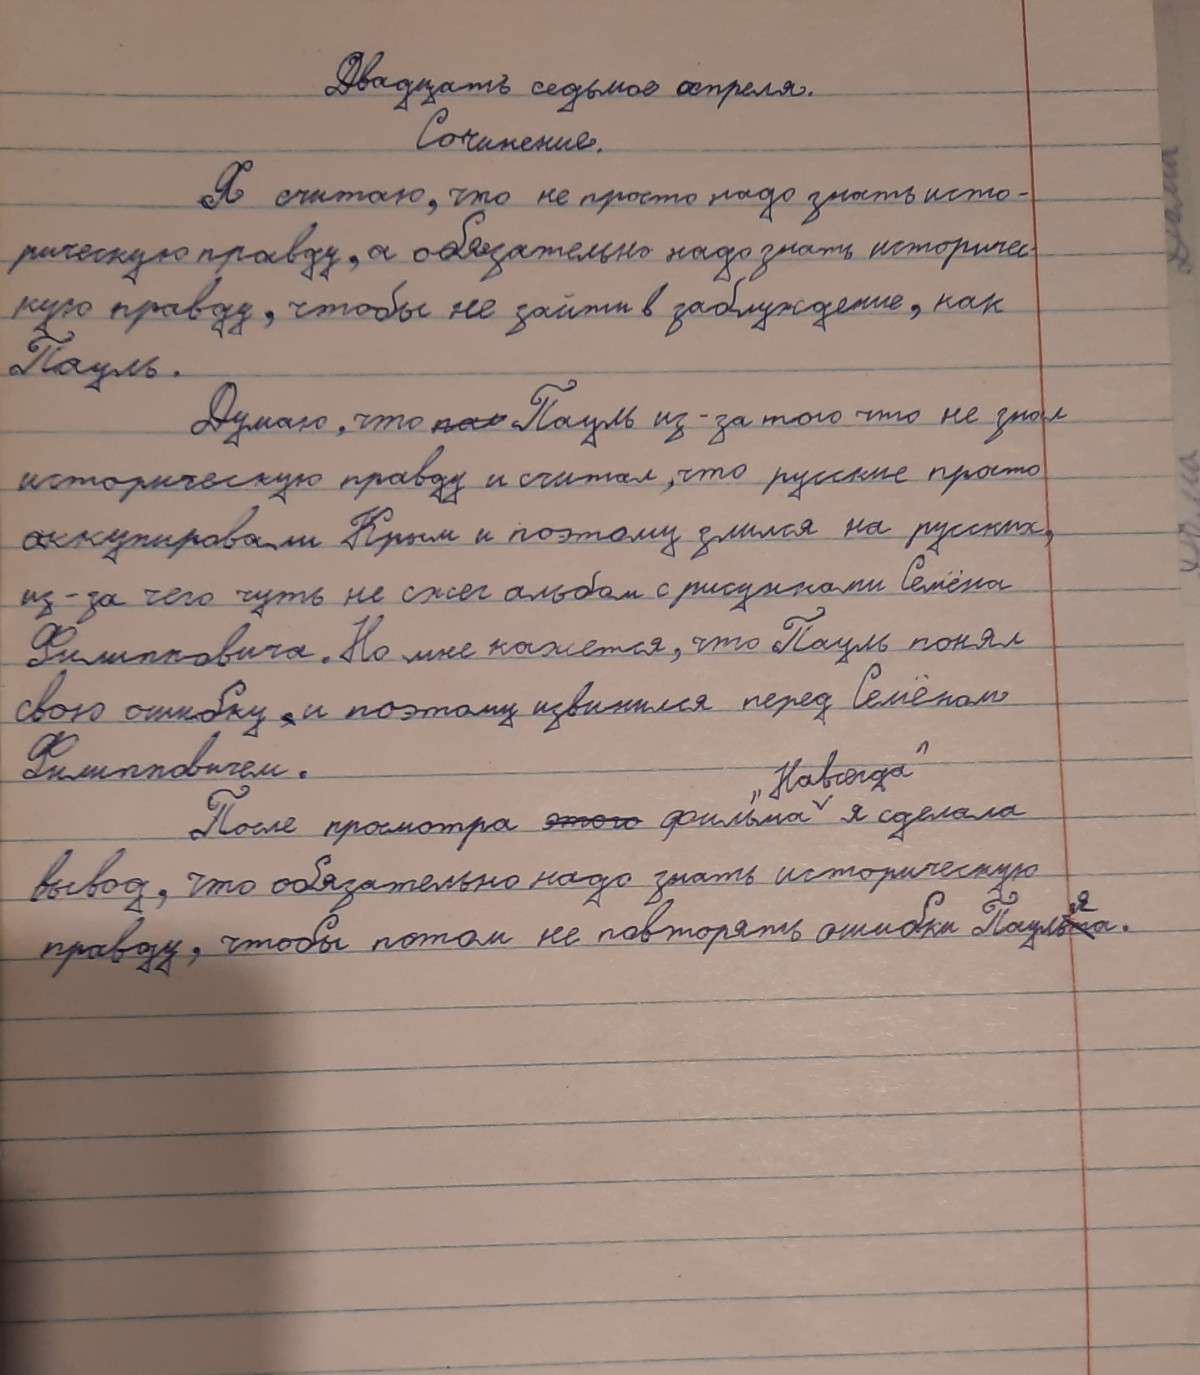 Двадцать седьмое апреля.
Сочинение.
Я считаю, что не просто надо знать исто-
рическую правду, а обязательно надо знать историчес-
кую правду, чтобы не зайти в заблуждение, как
Пауль.
Думаю, что Пауль из-за того что не знал
историческую правду и считал, что русские просто
аккупировали Крым и поэтому злился на русских,
из-за чего чуть не сжег альбом с рисунками Семёна
Филипповича. Но мне кажется, что Пауль понял
свою ошибку, и поэтому извинился перед Семёном
Филипповичем.
После просмотра этого фильма „Навсегда" я сделала
вывод, что обязательно надо знать историческую
правду, чтобы потом не повторять ошибки Пауля.